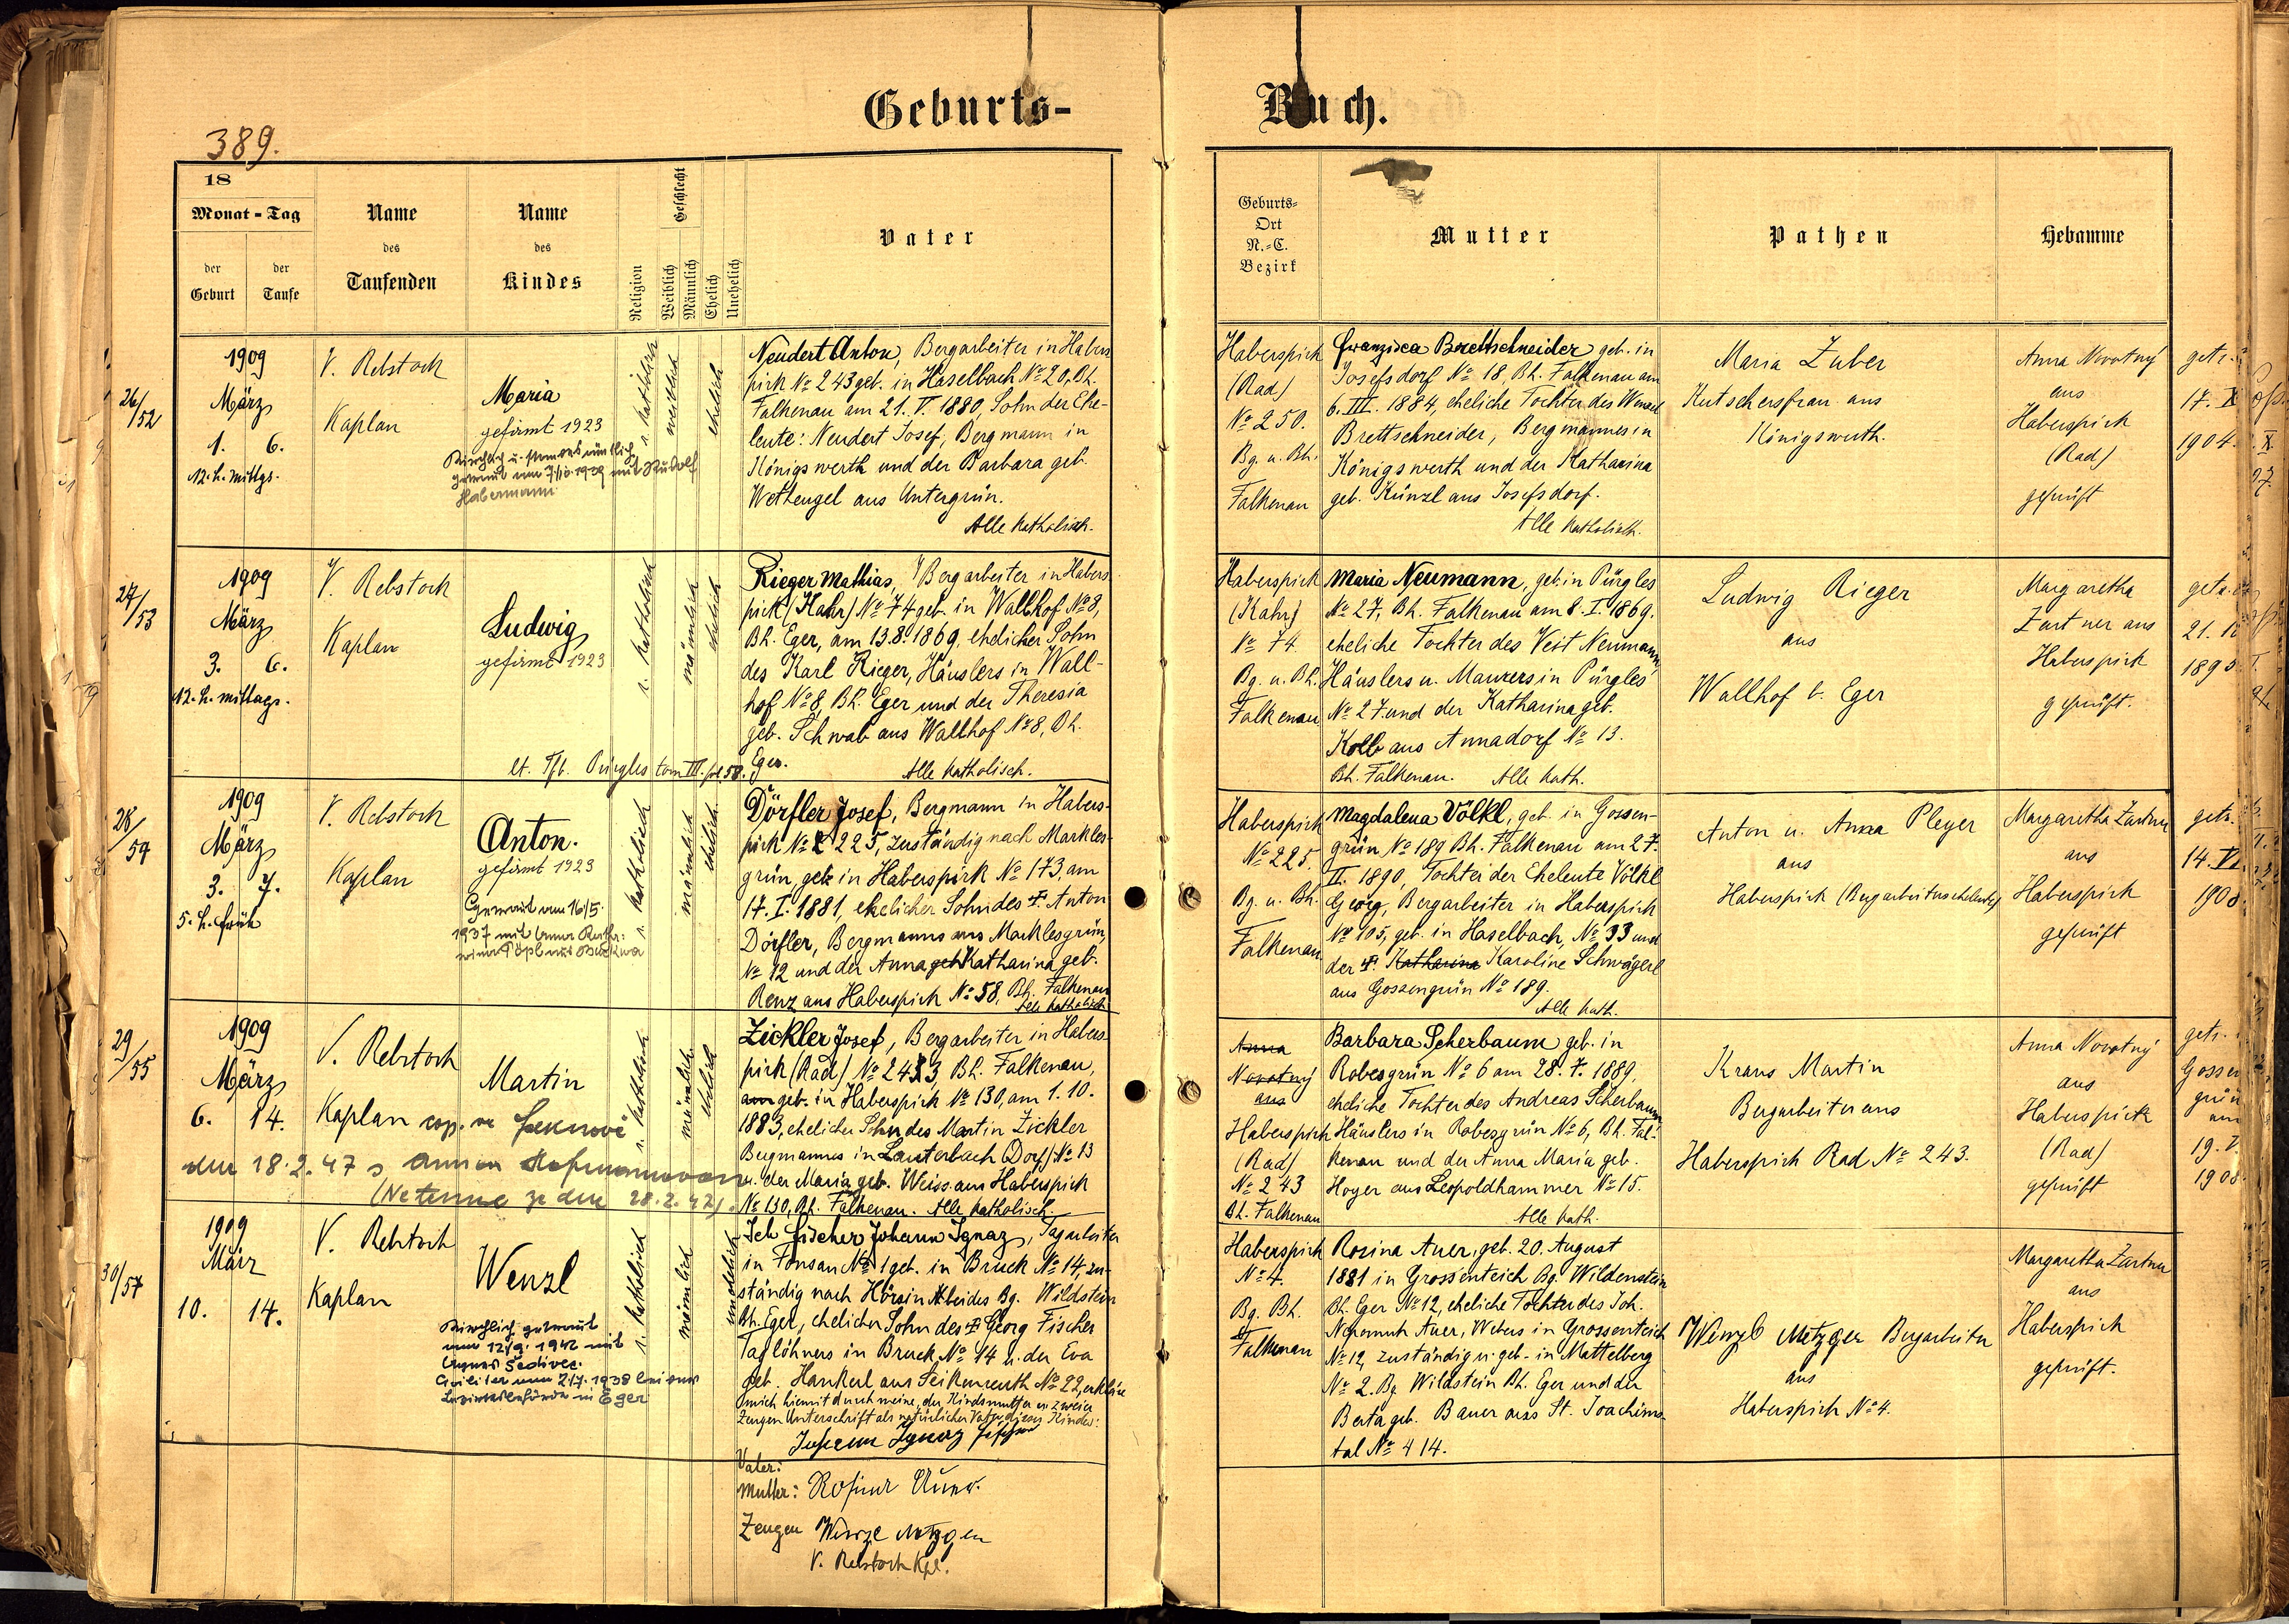 Geburts-
Buch.
389.
18
Monat - Tag
der Geburt
der Taufe
Name
des
Taufenden
Name
des
Kindes
Religion
Geschlecht
Weiblich
Männlich
Ehelich
Unehelich
Vater
Geburts-
Ort
N.-C.
Bezirk
Mutter
Pathen
Hebamme
26/52
1909
März
1. 6.
12. h. mittgs.
V. Rebstock
Kaplan
Maria
gefirmt 1923
Habermann
r. katholisch
weiblich
ehelich
Neudert Anton, Bergarbeiter in Habers
pirk № 243 geb. in Haselbach № 20, Bh.
Falkenau am 21. V. 1880, Sohn der Ehe-
leute: Neudert Josef, Bergmann in
Königswerth und der Barbara geb.
Wettengel aus Untergrün.
Alle katholisch.
Haberspirk
(Rad)
№ 250.
Bg. u. Bh.
Falkenau
Franzisca Brettschneider geb. in
Josefsdorf № 18, Bh. Falkenau am
6. III. 1884, eheliche Tochter des Wenzel
Brettschneider, Bergmannes in
Königswerth und der Katharina
geb. Künzl aus Josefsdorf.
Alle katholisch.
Maria Zuber
Kutschersfrau aus
Königswerth.
Anna Novotný
aus
Haberspirk
(Rad)
geprüft
getr.
17. X
1904.
27/53
1909
März
3. 6.
12. h. mittags.
V. Rebstock
Kaplan
Ludwig
gefirmt 1923
r. katholisch
männlich
ehelich
lt. Tfb. Pürgles tom III. fol. 58.
Rieger Mathias, Bergarbeiter in Habers
pirk (Kahr) № 74 geb. in Wallhof № 8,
Bh. Eger, am 13.8. 1869, ehelicher Sohn
des Karl Rieger, Häuslers in Wall-
hof № 8, Bh. Eger und der Theresia
geb. Schwab aus Wallhof № 8, Bh.
Eger.
Alle katholisch.
Haberspirk
(Kahr)
№ 74
Bg. u. Bh.
Falkenau
Maria Neumann, geb. in Pürgles
№ 27, Bh. Falkenau am 8. I. 1869.
eheliche Tochter des Veit Neumann,
Häuslers u. Maurers in Pürgles
№ 27. und der Katharina geb.
Kolb aus Annadorf № 13.
Bh. Falkenau. Alle kath.
Ludwig Rieger
aus
Wallhof b. Eger
Margaretha
Zartner aus
Haberspirk
geprüft.
21.
1895
28/54
1909
März
3. 7.
5. h. früh
V. Rebstock
Kaplan
Anton.
gefirmt 1923
Getraut am 16/5.
1937 mit Anna
r. katholisch
männlich
ehelich
Dörfler Josef, Bergmann in Habers-
pirk № 225, zuständig nach Markles-
grün, geb. in Haberspirk № 173, am
17. I. 1881, ehelicher Sohn des † Anton
Dörfler, Bergmanns aus Marklesgrün,
№ 12 und der Anna geb Katharina geb.
Renz aus Haberspirk № 58, Bh. Falkenau
Alle katholisch
Haberspirk
№ 225.
Bg. u. Bh.
Falkenau.
Magdalena Völkl, geb. in Gossen-
grün № 189 Bh. Falkenau am 27.
II. 1890, Tochter der Eheleute Völkl
Georg, Bergarbeiter in Haberspirk
№ 105, geb. in Haselbach, № 33 und
der †. Katharina Karoline Schwägerl
aus Gossengrün № 189.
Alle kath.
Anton u. Anna Pleyer
aus
Haberspirk (Bergarbeiterseheleute)
Margaretha Zartner
aus
Haberspirk
geprüft
getr.
14. VI.
1908
29/55
1909
März
6. 14.
V. Rebstock
Kaplan
cop. ve
Martin
dne 18.2.47 s Annou
dne 28.2.47).
r. katholisch
männlich
ehelich
Zickler Josef, Bergarbeiter in Habers-
pirk (Rad) № 243, Bh. Falkenau,
am geb. in Haberspirk № 130, am 1. 10.
1883, ehelicher Sohn des Martin Zickler
Bergmannes in Lauterbach (Dorf) № 13
u. der Maria geb. Weiss aus Haberspirk
№ 130, Bh. Falkenau. Alle katholisch.
Anna
Novotný
aus
Haberspirk
(Rad)
№ 243
Bh. Falkenau
Barbara Scherbaum geb. in
Robesgrün № 6 am 28. 7. 1889,
eheliche Tochter des Andreas Scherbaum,
Häuslers in Robesgrün № 6, Bh. Fal-
kenau und der Anna Maria geb.
Hoyer aus Leopoldhammer № 15.
Alle kath.
Kraus Martin
Bergarbeiter aus
Haberspirk Rad № 243.
Anna Novotný
aus
Haberspirk
(Rad)
geprüft
getr.
Gossen
grün
am
19. V.
1908.
30/57
1909
März
10. 14.
V. Rebstock
Kaplan
Wenzl
Kirchlich getraut
am 12/9. 1942 mit
Agnes Sedivec.
Civiliter am 2/7. 1938 bei der
Bezirksbehörde in Eger
r. katholisch
männlich
unehelich
Ich Fischer Johann Ignaz, Tagarbeiter
in Fonsau № 1 geb. in Bruck № 14, zu-
ständig nach Hörsin beides Bg. Wildstein
Bh. Eger, ehelicher Sohn des † Georg Fischer
Taglöhners in Bruck № 14 u. der Eva
geb. Hankerl aus Seikenreuth № 22, erkläre
mich hiemit durch meine, der Kindsmutter u. zweier
Zeugen Unterschrift als natürlicher Vater dieses Kindes:
Vater: Johann Ignaz Fischer
Mutter: Rosina Auer.
Zeugen Wenzl Metzger
V. Rebstock Kpl.
Haberspirk
№ 4.
Bg. Bh.
Falkenau
Rosina Auer, geb. 20. August
1881 in Grossenteich Bg. Wildenstein
Bh. Eger № 12, eheliche Tochter des Joh.
Nepomuk Auer, Webers in Grossenteich
№ 12, zuständig u. geb. in Mattelberg
№ 2. Bg. Wildstein Bh. Eger und der
Berta geb. Bauer aus St. Joachims-
tal № 414.
Wenzl Metzger Bergarbeiter
aus
Haberspirk № 4.
Margaretha Zartner
aus
Haberspirk
geprüft.